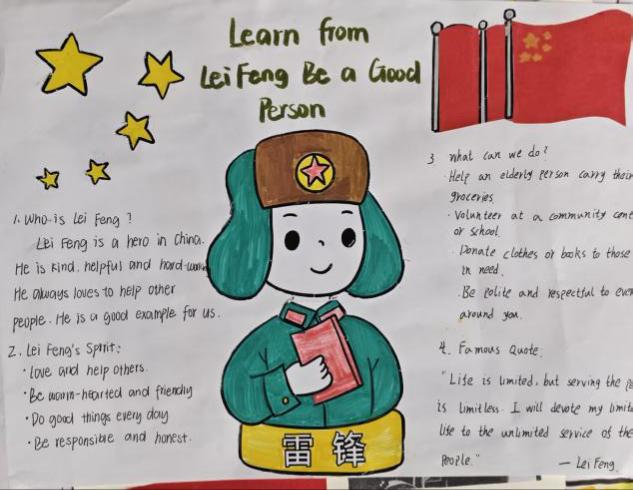 Learn from
Lei Feng Be a Good
Person
1. Who is Lei Feng ?
Lei Feng is a hero in China.
He is kind, helpful and hard-
He always loves to help other
people. He is a good example for us.
2. Lei Feng's Spirit:
· Love and help others.
· Be warm-hearted and friendly
· Do good things every day
· Be responsible and honest.
雷锋
3 What can we do?
· Help an elderly person carry their
groceries
· Volunteer at a community
or school.
· Donate clothes or books to those
in need.
· Be polite and respectful to
around you.
4. Famous Quote.
"Life is limited, but serving the
is limitless. I will devote my
life to the unlimited service of the
People."
— Lei Feng.